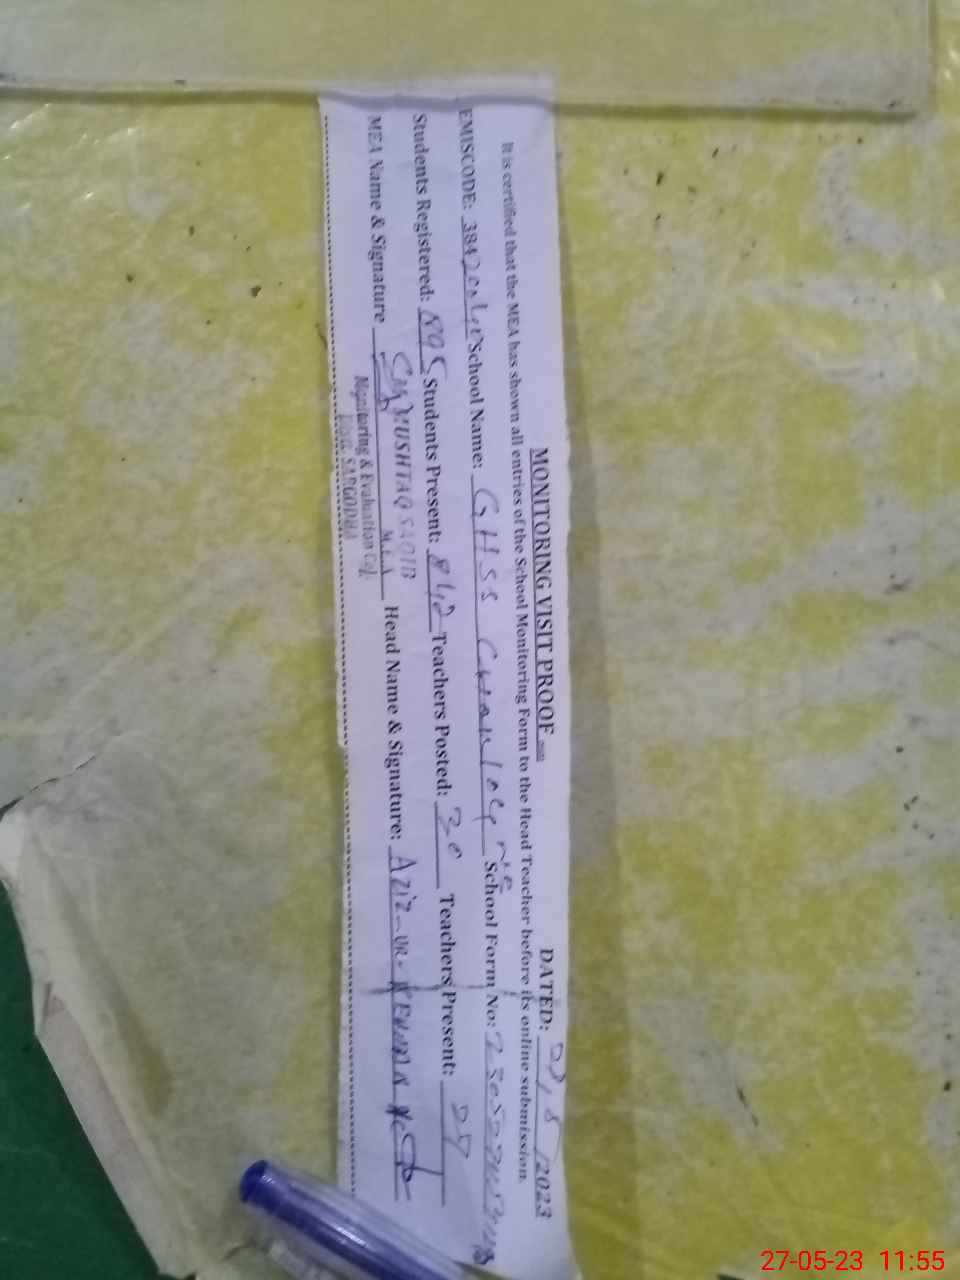 MONITORING VISIT PROOF DATED: /2023
It is certified that the MEA has shown all entries of the School Monitoring Form to the Head Teacher before its online submission.
EMISCODE: School Name: GHSS School Form No:
Students Registered: 895 Students Present: Teachers Posted: 30 Teachers Present: 27
MEA Name & Signature Head Name & Signature: AZIZ-UR-REHMAN
MUSHTAQ SAQIB
M.E.A
Monitoring & Evaluation Cell
SARGODHA
27-05-23 11:55